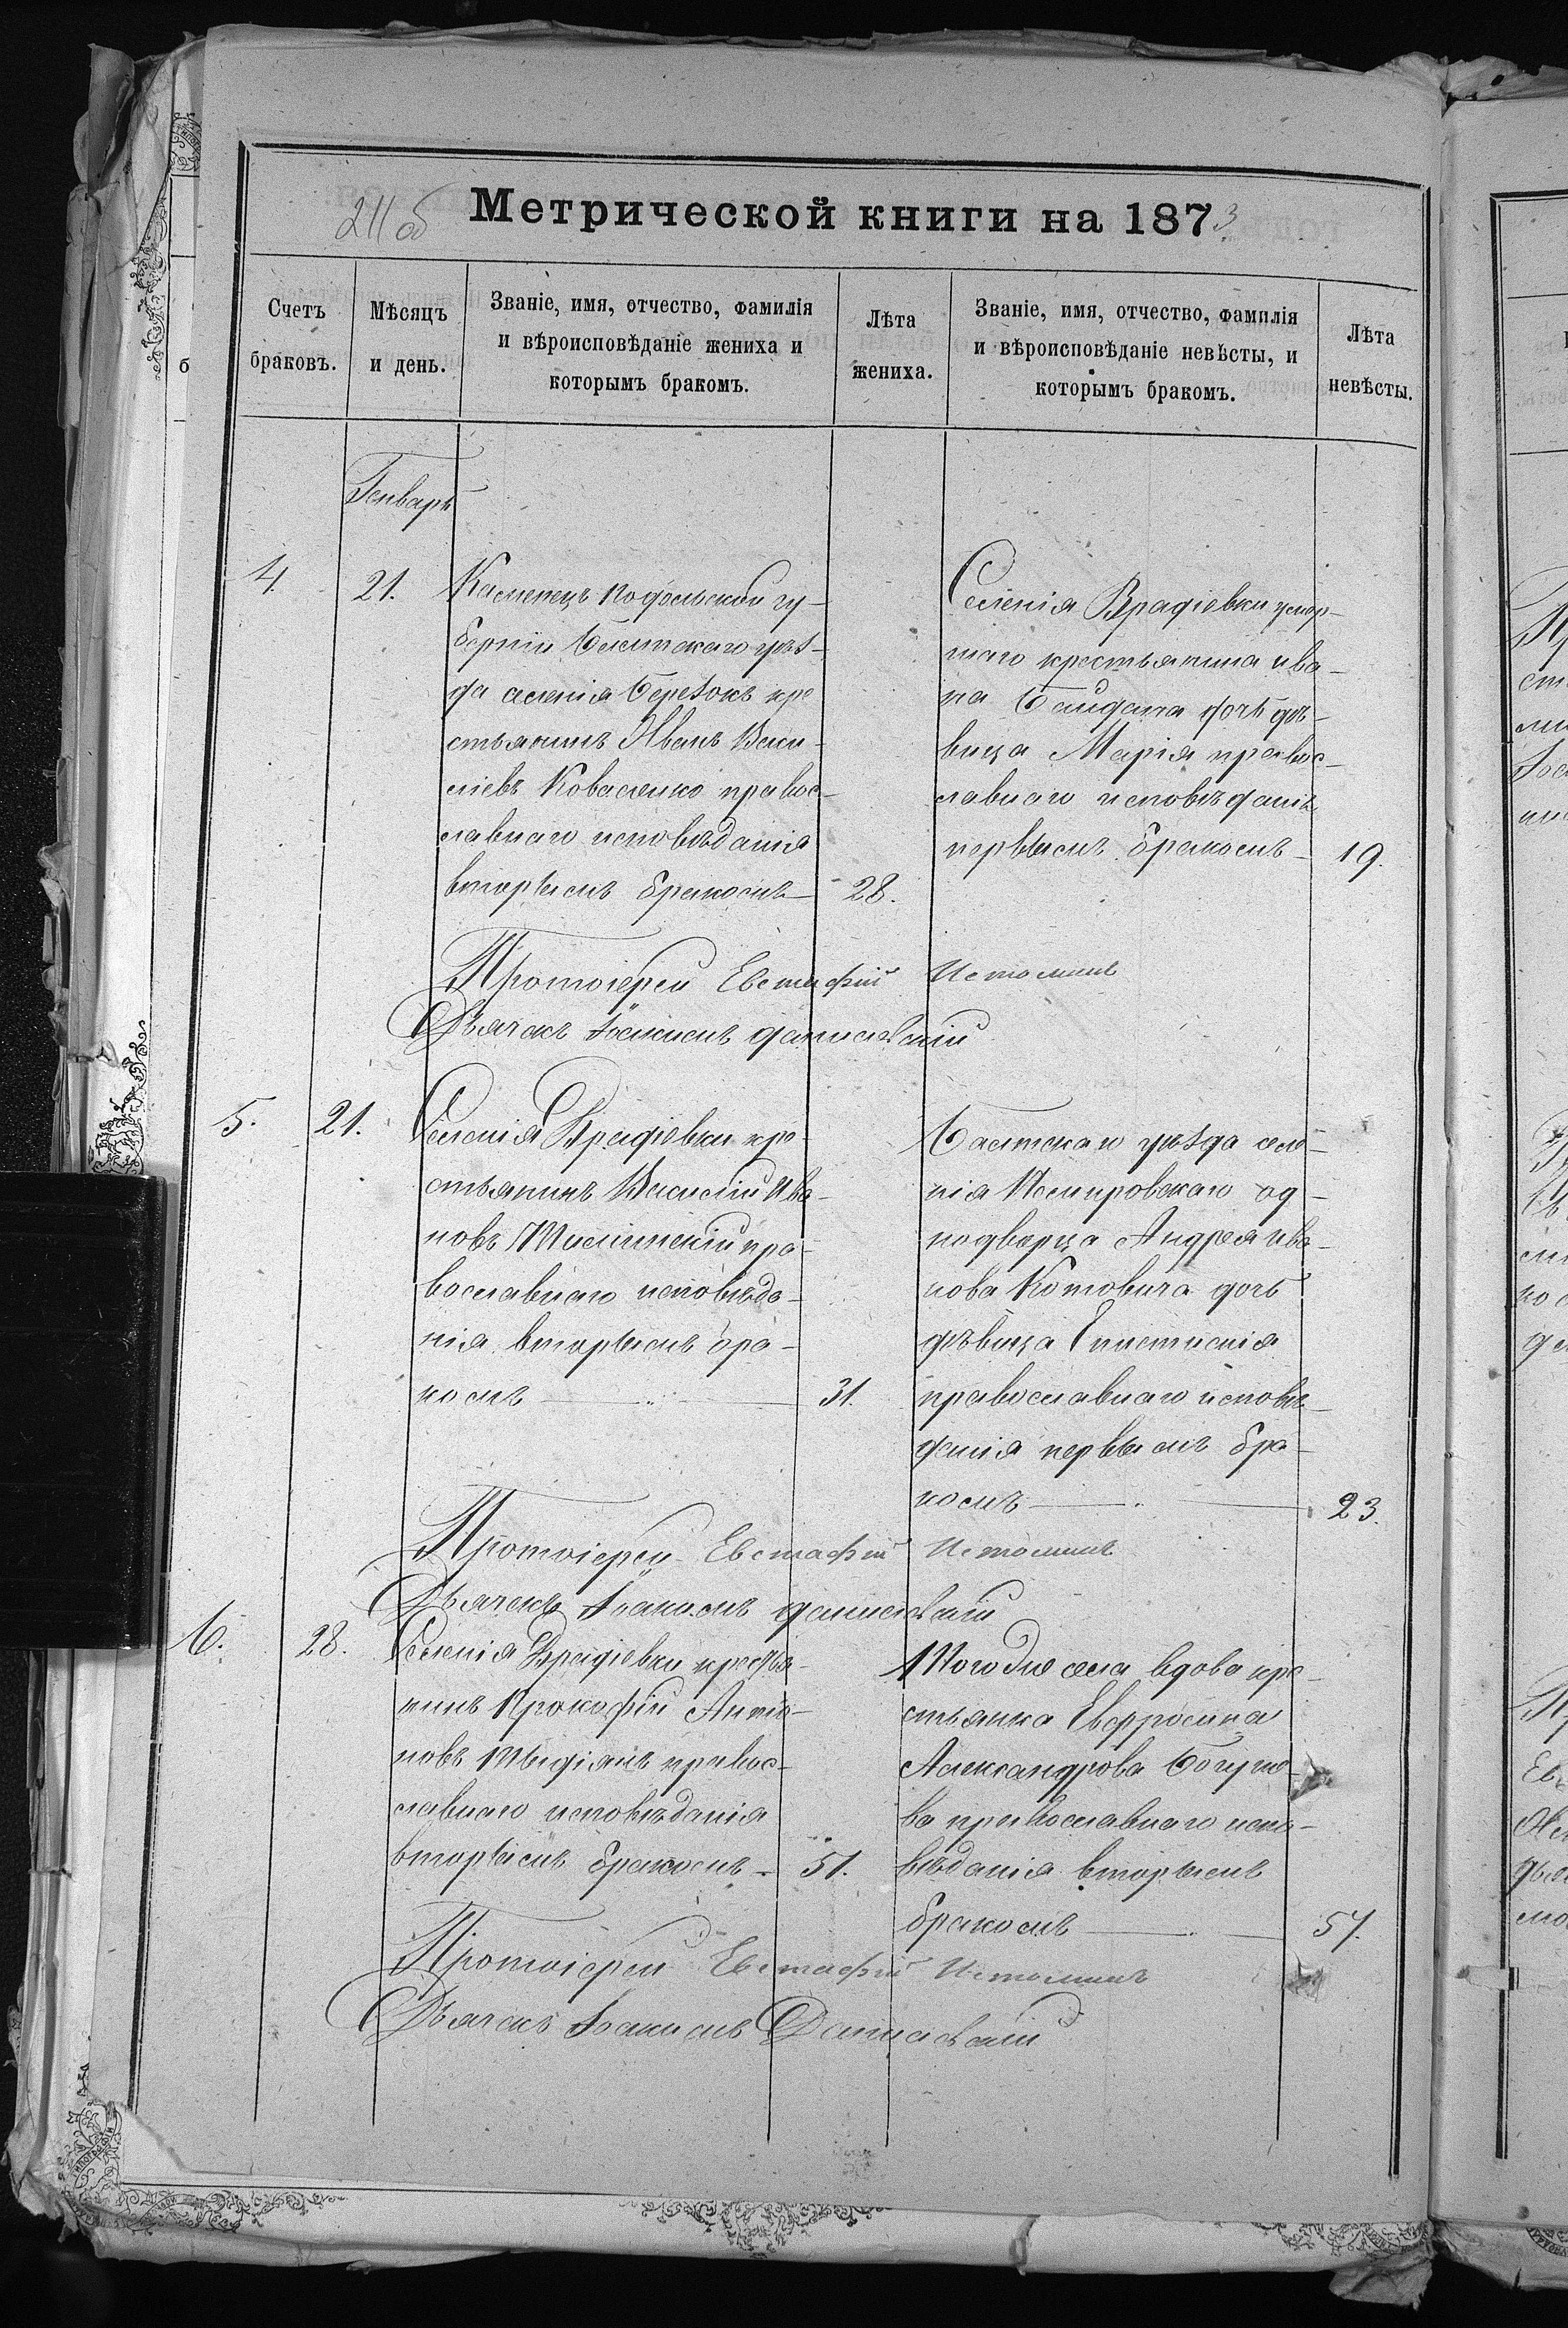 211 об
Метрической книги на 1873
Счетъ браковъ.
Мѣсяцъ и день.
Званіе, имя, отчество, фамилія и вѣроисповѣданіе жениха и которымъ бракомъ.
Лѣта жениха.
Званіе, имя, отчество, фамилія и вѣроисповѣданіе невѣсты, и которымъ бракомъ.
Лѣта невѣсты.
Генваръ
4.
21.
Каменецъ Подольской гу-
берніи Балтскаго уѣз-
да селенія Березокъ кре
стьянинъ Иванъ Васи-
ліевъ Коваленко правос-
лавнаго исповѣданія
вторымъ бракомъ
28.
Селенія Врадіевки умер-
шаго крестьянина Ива-
на Байдана дочь дѣ-
вица Марія правос-
лавнаго исповѣданія
первымъ бракомъ
19.
Протоіерей Евстафій Истоминъ
Дьячекъ Іоакимъ Данилевскій
5.
21.
Селенія Врадіевки кре-
стьянинъ Василій Ива-
новъ пра-
вославнаго исповѣда-
нія вторымъ бра-
комъ
31.
Балтскаго уѣзда селе-
нія од-
нодворца Андрея Ива-
нова Котовича дочь
дѣвица Епистимія
православнаго исповѣ-
данія первымъ бра-
комъ
23.
Протоіерей Евстафій Истоминъ
Дьячекъ Іоакимъ Данилевскій
6.
28.
Селенія Врадіевки крестья-
нинъ Прокофій Анто-
новъ правос-
лавнаго исповѣданія
вторымъ бракомъ
51.
Тогоже села вдова кре-
стьянка Евфросина
Александрова
ва православнаго испо-
вѣданія вторымъ
бракомъ
57.
Протоіерей Евстафій Истоминъ
Дьячекъ Іоакимъ Данилевскій